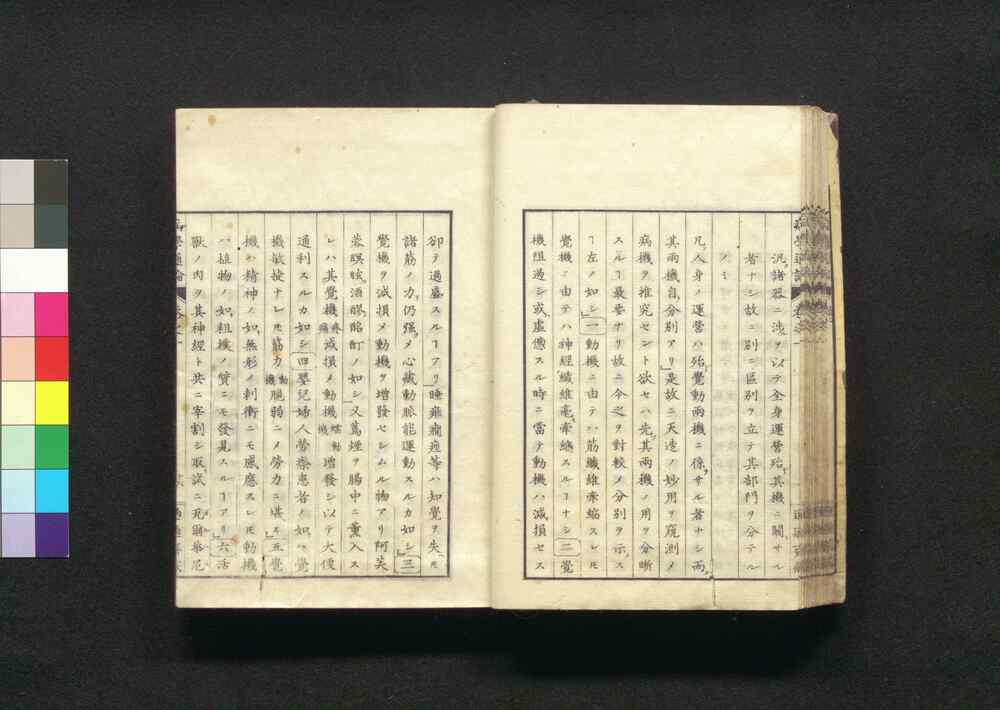 汎諸器ニ渉ヲ以テ全身運營殆其機ニ關サル
者ナシ故ニ別ニ區別ヲ立テ其部門ヲ分テル
ノミ
凡人身ノ運營ハ殆覺動兩機ニ係ラサル者ナシ而
其兩機自分別アリ是故ニ天造ノ妙用ヲ窺測シメ
病機ヲ推究セント欲セハ先其兩機ノ用ヲ分晰
スルヿ最要ナリ故ニ今之ヲ對較メ分別ヲ示ス
ヿ左ノ如シ一動機ニ由テハ筋纖維牽縮スレ𪜈
覺機ニ由テハ神經纖維毫牽縮スルヿナシ二覺
機阻遏シ或虛憊スル時ニ當テ動機ハ減損セス
卻テ過盛スルヿアリ睡癱癇痙等ハ知覺ヲ失𪜈
諸筋ノ力仍強メ心藏動脈能運動スルカ如シ三
覺機ヲ減損メ動機ヲ增發セシムル物アリ阿芙
蓉瞑眩酒醪酩酊ノ如シ又蔫煙ヲ腸中ニ薰入ス
レハ其覺機疼痛減損メ動機蠕動機增發シ以テ大便
通利スルカ如シ四嬰兒婦人勞瘵患者ノ如ハ覺
機敏捷ナレ𪜈筋力動機脆弱ニメ勞力ニ堪ス五覺
機ハ精神ノ如無形ノ刺衝ニモ感應スレ𪜈動機
ハ植物ノ如粗樸ノ質ニモ發見スルヿアリ六活
獸ノ肉ヲ其神經ト共ニ宰割シ取試ニ瓦爾華尼
病學通論